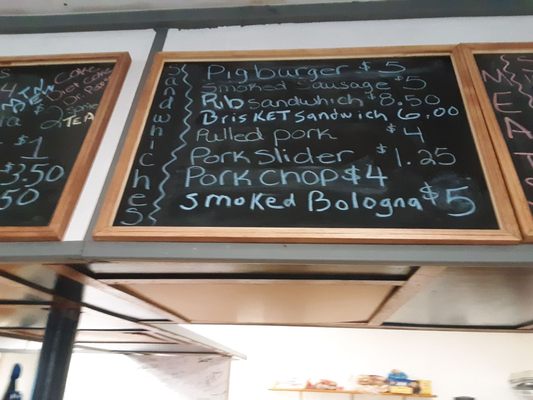 Coke
Diet Coke
Dr Pop
TEA
$1
3.50
50
Sandwiches
Pigburger $5
Smoked Sausage $5
Rib sandwich $8.50
BrisKET sandwich 6.00
Pulled pork $4
Pork Slider $1.25
Pork Chop $4
smoked Bologna $5
MEAT